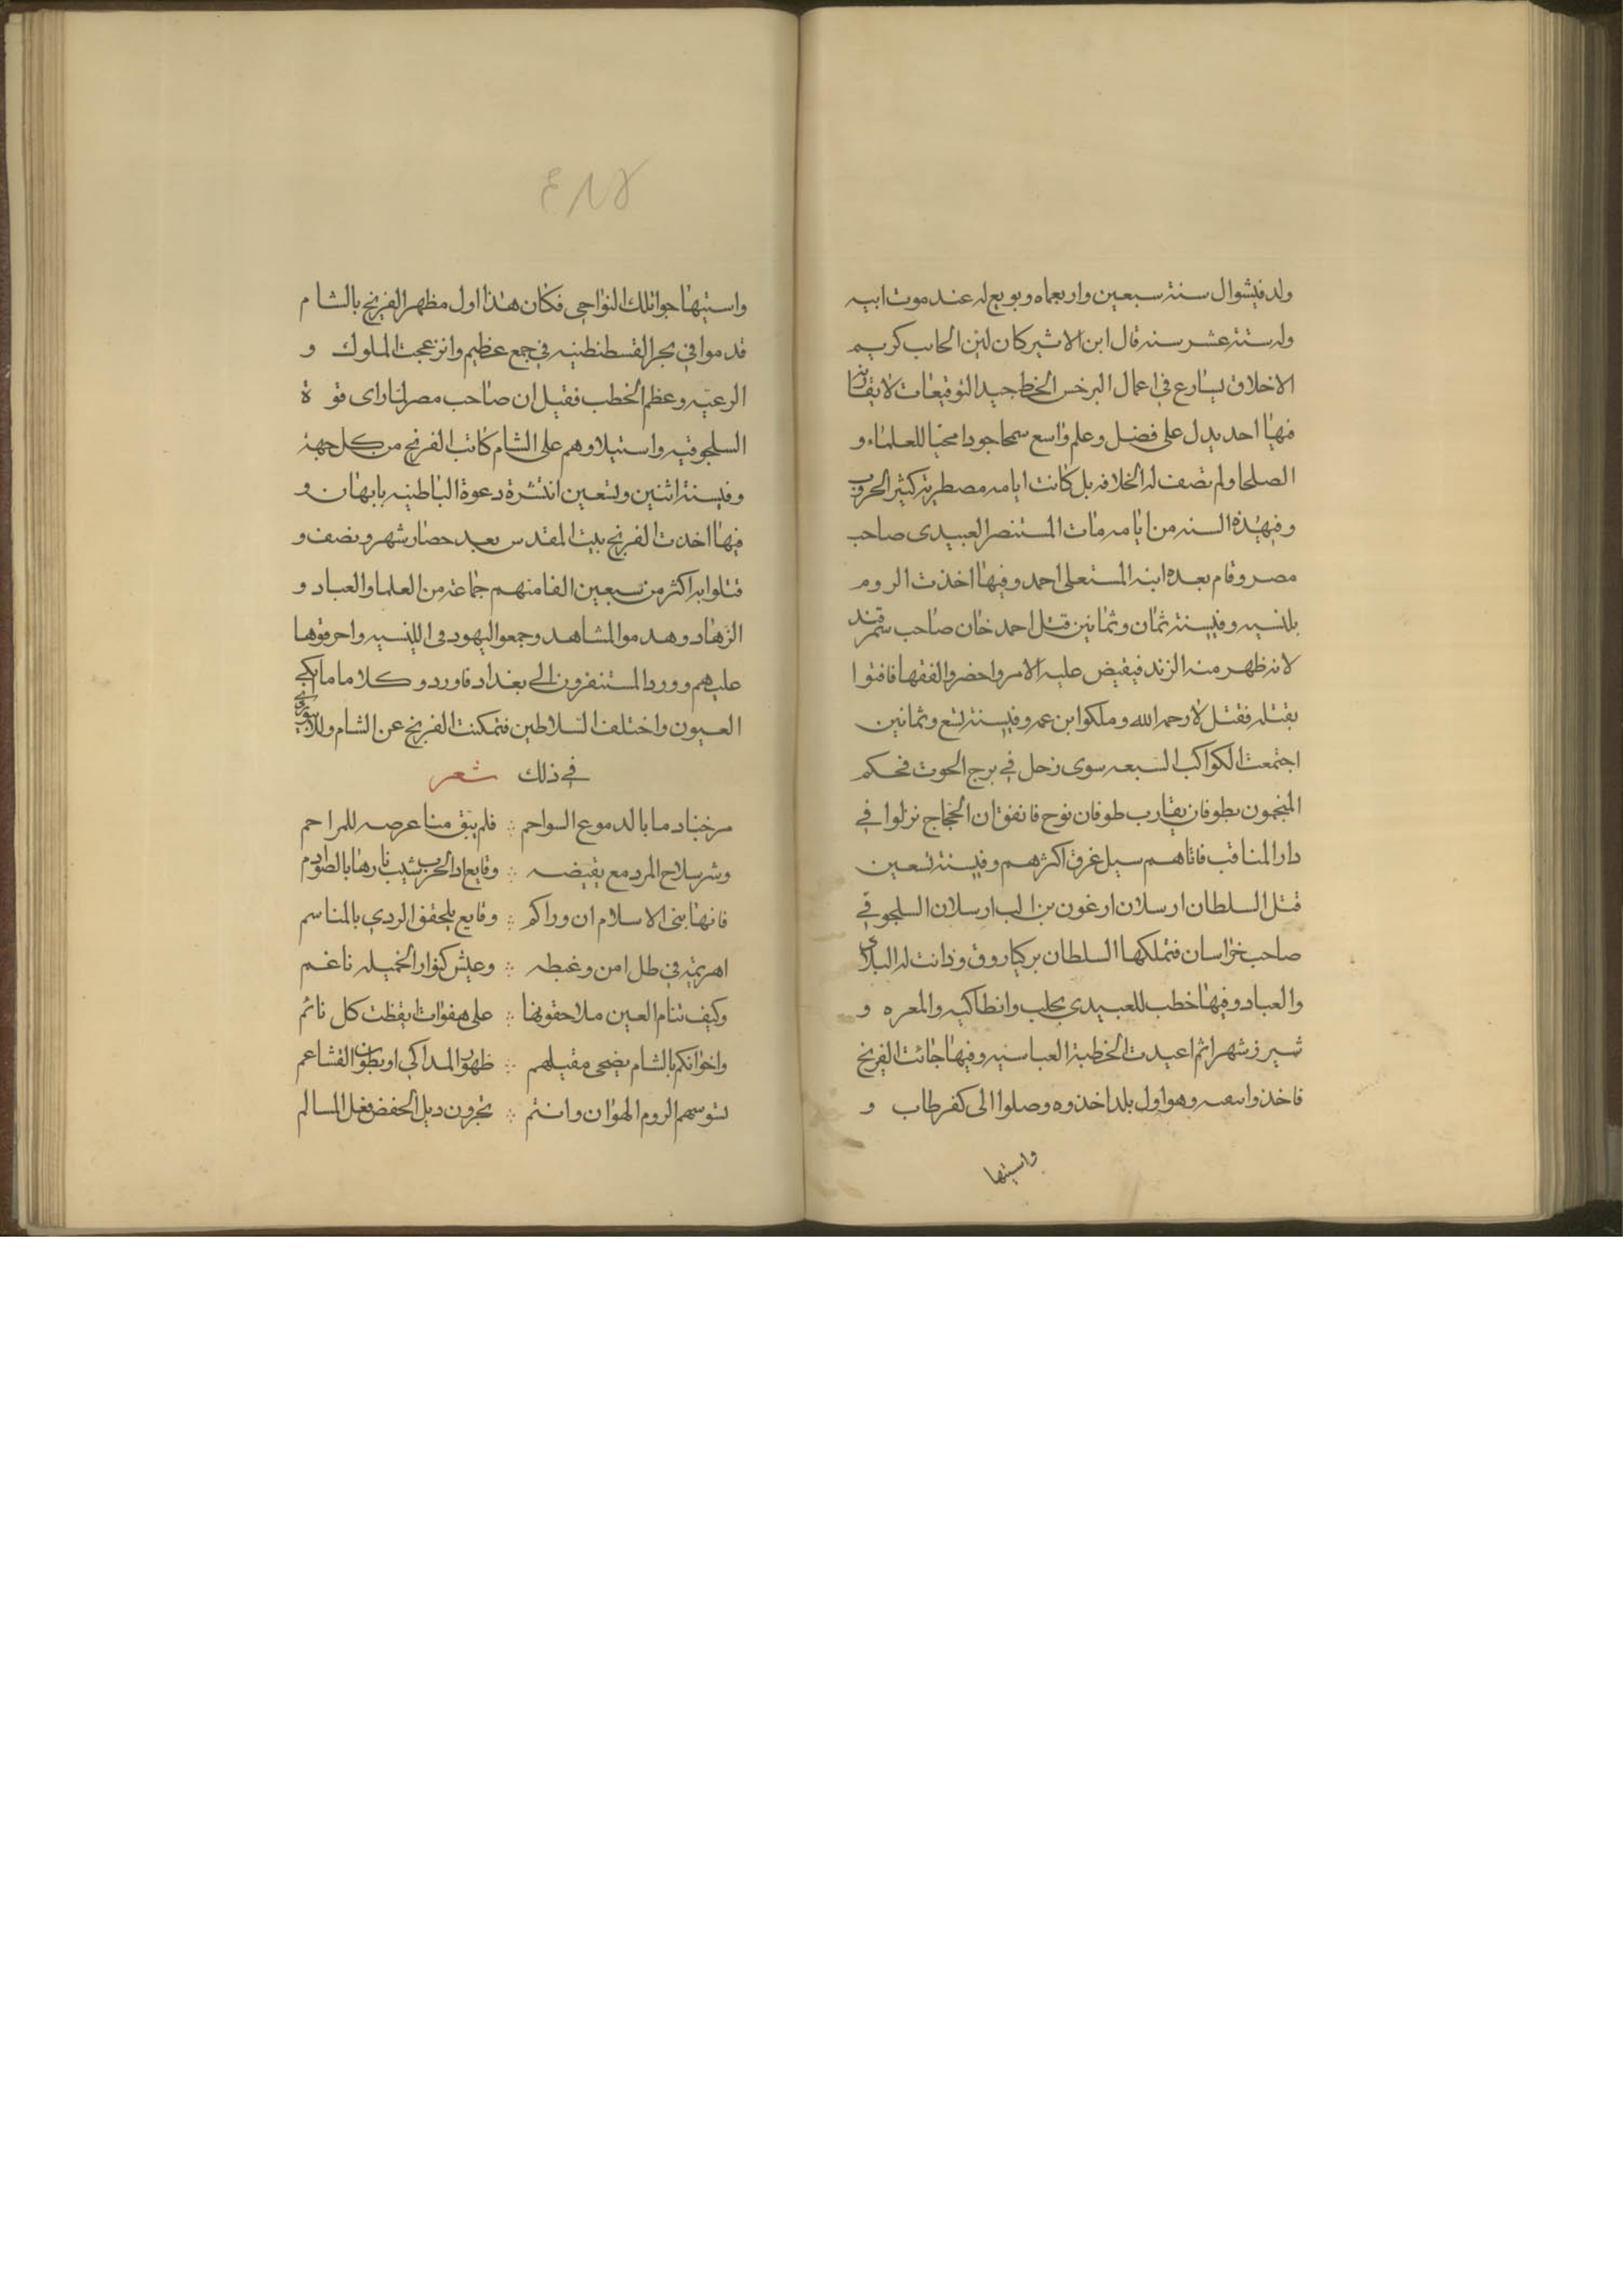 ولد فيشوال سنة سبعين واربعماه وبويع له عند موت ابيه
وله ستة عشر سنه قال ابن الاثير كان لين الجانب كريم
الاخلاق يسارع في اعمال البر خس الخط جيد التوقيعات لا يقاربه
فيها احد يدل على فضل وعلم واسع سمحا جودا محبا للعلماء و
الصلحا ولم تصف له الخلافه بل كانت ايامه مضطربة كثير الحروب
وفيهذه السنه من ايامه مات المستنصر العبيدى صاحب
مصر وقام بعده ابنه المستعلى احمد وفيها اخذت الروم
بلنسيه وفيسنة ثمان وثمانين قتل احمد خان صاحب سمرقند
لانه ظهر منه الزند فيقيض عليه الامر واحضر والفقها فافتوا
بقتله فقتل لا رحمه الله وملكوا ابن عمه وفيسنة تسع وثمانين
اجتمعت الكواكب السبعه سوى زحل في برج الحوت فحكم
المنجمون بطوفان يقارب طوفان نوح فاتفق ان الحجاج نزلوا في
دار المناقب فاتاهم سيل غرق اكثرهم وفيسنة تسعين
قتل السلطان ارسلان ارغون بن الب ارسلان السلجوقي
صاحب خراسان فتملكها السلطان بركياروق ودانت له البلاد
والعباد وفيها خطب للعبيدي بحلب وانطاكيه والمعره و
شيرز شهرا ثم اعيدت الخطبة العباسيه وفيها جائت الفرنج
فاخذوا سعيه وهو اول بلد اخذوه وصلوا الى كفرطاب و
واستبها
٤١٧
واستبها حوا تلك النواحي فكان هذا اول مظهر الفرنج بالشام
قدموا في بحر القسطنطنيه في جمع عظيم وانزعجت الملوك و
الرعيه وعظم الخطب فقيل ان صاحب مصر لما راى قوة
السلجوقيه واستيلاوهم على الشام كاتب الفرنج من كل جهة
وفيسنة اثنين وتسعين انتشرة دعوة الباطنيه بابهان و
فيها اخذت الفرنج بيت المقدس بعد حصار شهر ونصف و
قتلوا به اكثر من سبعين الفا منهم جماعة من العلما والعباد و
الزهاد وهدموا المشاهد وجمعوا اليهود في الكنسيه واحرقوها
عليهم وورد المستنفرون الى بغداد فاوردو كلاما ما ابكى
العيون واختلف السلاطين فتمكنت الفرنج عن الشام وللابيوردي
في ذلك شعر
مزجنا دما بالدموع السواجم ∴ فلم يبق منا عرصه للمراحم
وشر سلاح المرء دمع يفيضه ∴ وقايع اذ الحرب شبت نارها بالصوارم
فايها بنى الاسلام ان وراكم ∴ وقايع يلحقن الردي بالمناسم
اهريمة في ظل امن وغبطه ∴ وعيش كنوار الخميله ناغم
وكيف تنام العين ملا حقونها ∴ على هفوات ايقظت كل نائم
واخوانكم بالشام يضحى مقيلهم ∴ ظهور المداكي او بطون القشاعم
لتوسهم الروم الهوان وانتم ∴ تجرون ديل الحفض فعل المسالم